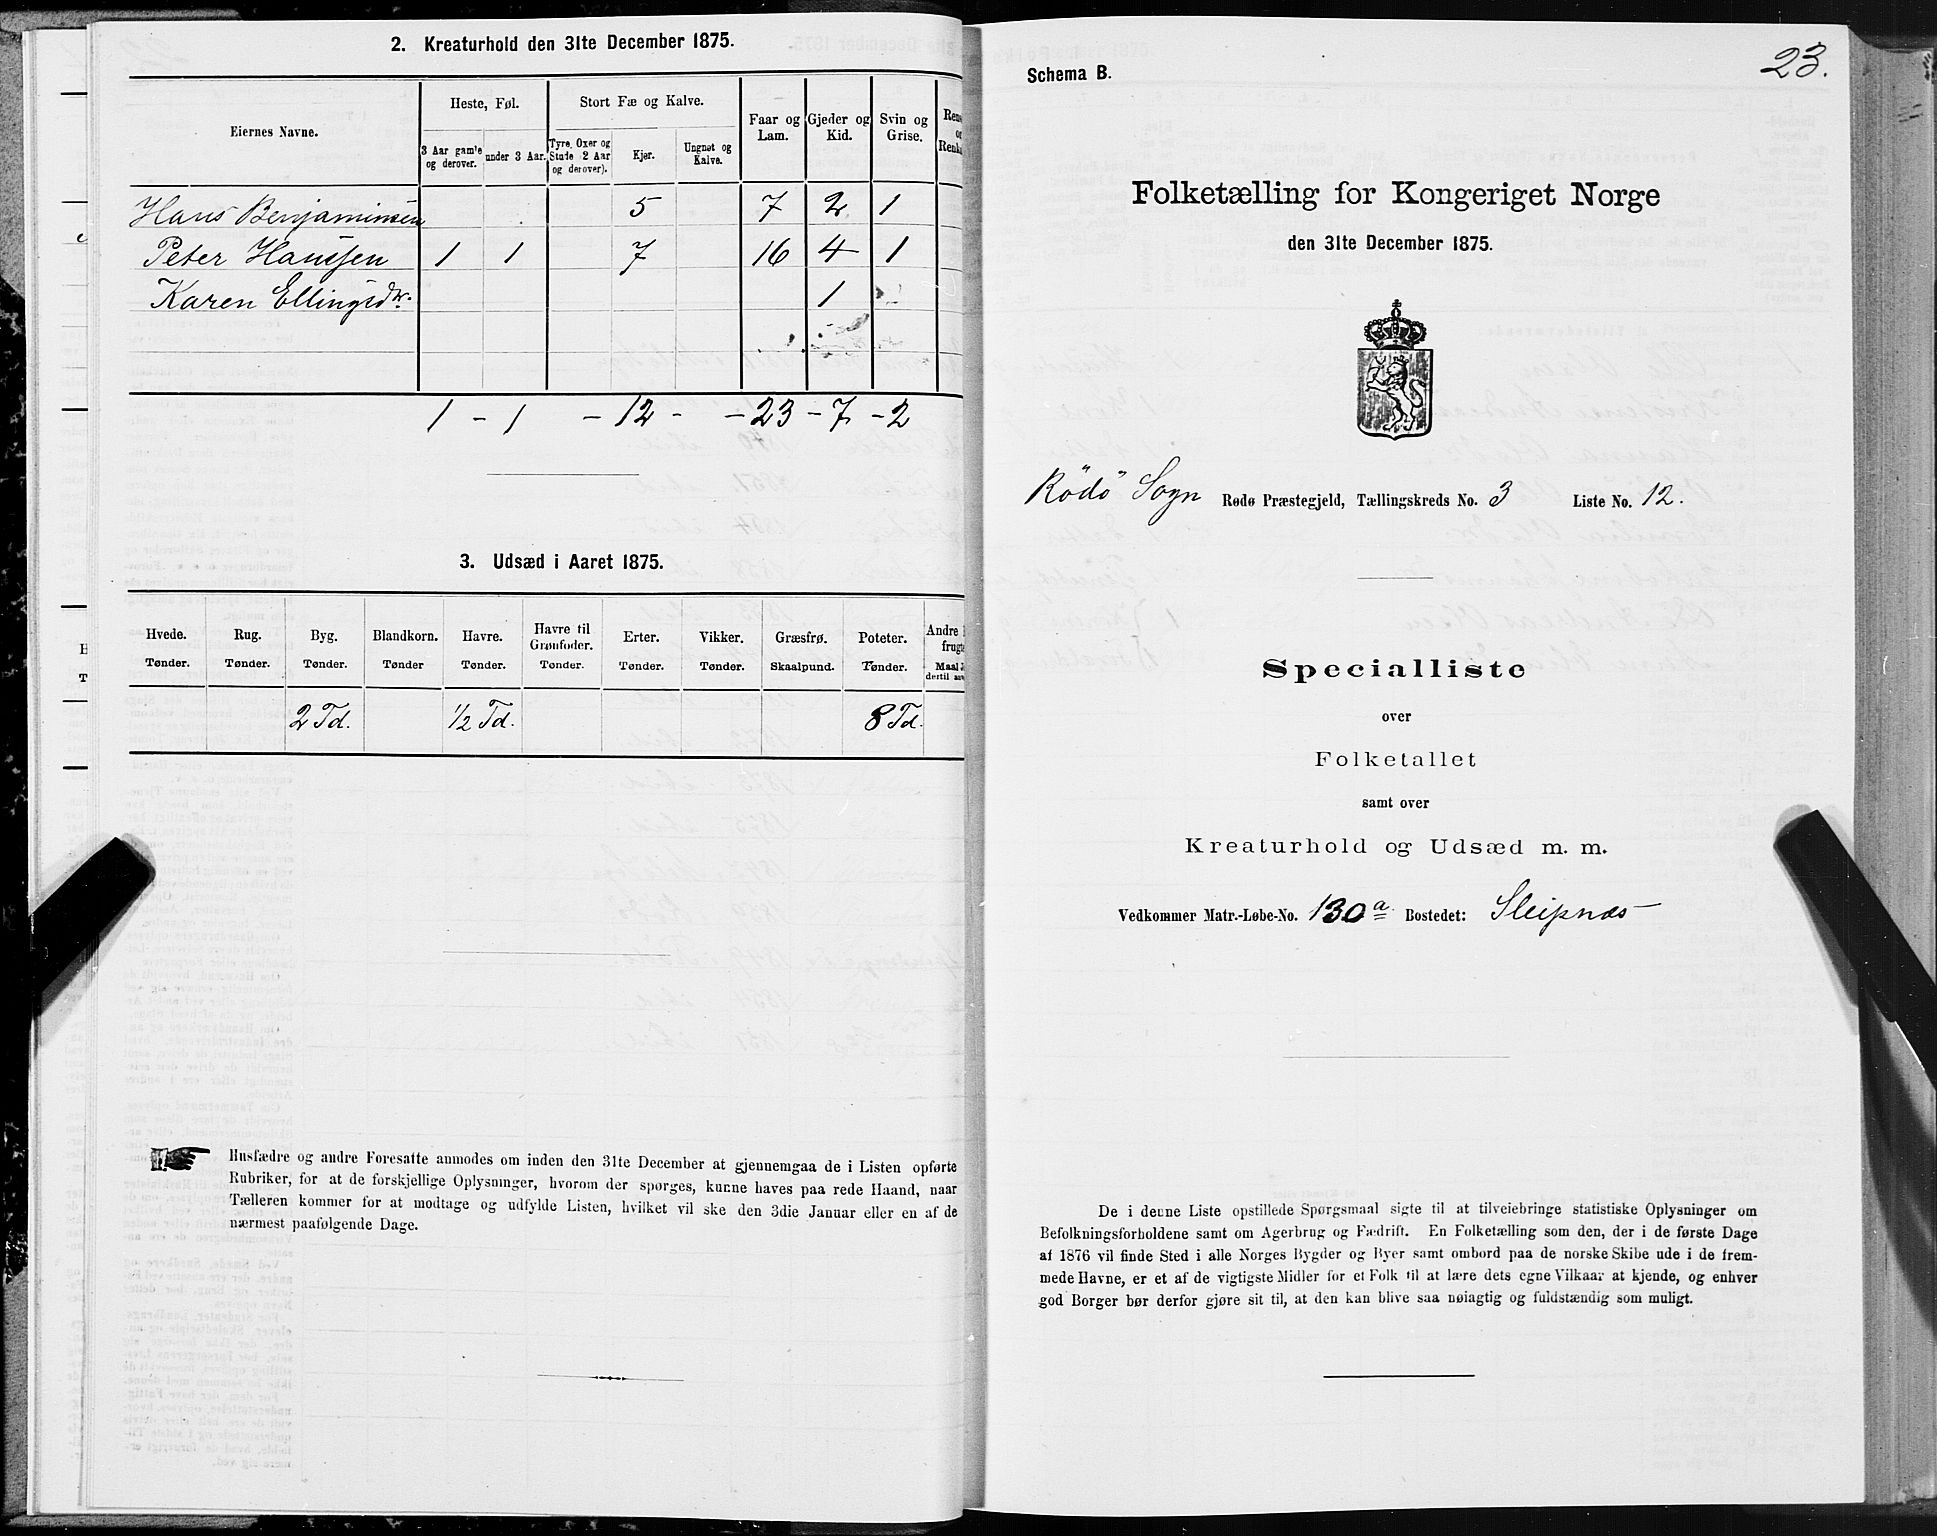 2. Kreaturhold den 31te December 1875.
Eiernes Navne.
Heste, Føl.
Stort Fæ og Kalve.
Faar og Lam.
Gjeder og Kid.
Svin og Grise.
3 Aar gam'e og derover.
under 3 Aar.
Tyre, Oxer og Stude 2 Aar og derover).
Kjør.
Ungnøt og Kalve.
Hans Benjaminsen 5 7 2 1
Peter Hanssen 1 1 7 16 4 1
Karen Ellingsdtr. 1
1 - 1 - 12 - - 23 - 7 - 2
3. Udsæd i Aaret 1875.
Hvede. Rug. Byg. Blandkorn. Havre. Havre til Grønfoder. Erter. Vikker. Græsfrø. Poteter. Andre
Tønder. Tønder. Tønder. Tønder Tønder. Tønder. Tønder. Tønder. Skaalpund. Tønder.
2 Td. 1/2 Td. 8 Td.
Husfædre og andre Foresatte anmodes om inden den 31te December at gjennemgaa de i Listen opførte
Rubriker, for at de forskjellige Oplysninger, hvorom der spørges, kunne haves paa rede Haand, naar
Tælleren kommer for at modtage og udfylde Listen, hvilket vil ske den 3die Januar eller en af de
nærmest paafølgende Dage.
23.
Schema B.
Folketælling for Kongeriget Norge
den 31te December 1875.
Rödö Sogn Rødø Præstegjeld, Tællingskreds No. 3 Liste No. 12.
Specialliste
over
Folketallet
samt over
Kreaturhold og Udsæd m. m.
Vedkommer Matr.-Løbe-No. 130a Bostedet: Sleipnæs
De i denne Liste opstillede Spørgsmaal sigte til at tilveiebringe statistiske Oplysninger om
Befolkningsforholdene samt om Agerbrug og Fædrift. En Folketælling som den, der i de første Dage
af 1876 vil finde Sted i alle Norges Bygder og Byer samt ombord paa de norske Skibe ude i de frem-
mede Havne, er et af de vigtigste Midler for et Folk til at lære dets egne Vilkaar at kjende, og enhver
god Borger bør derfor gjøre sit til, at den kan blive saa nøiagtig og fuldstændig som muligt.